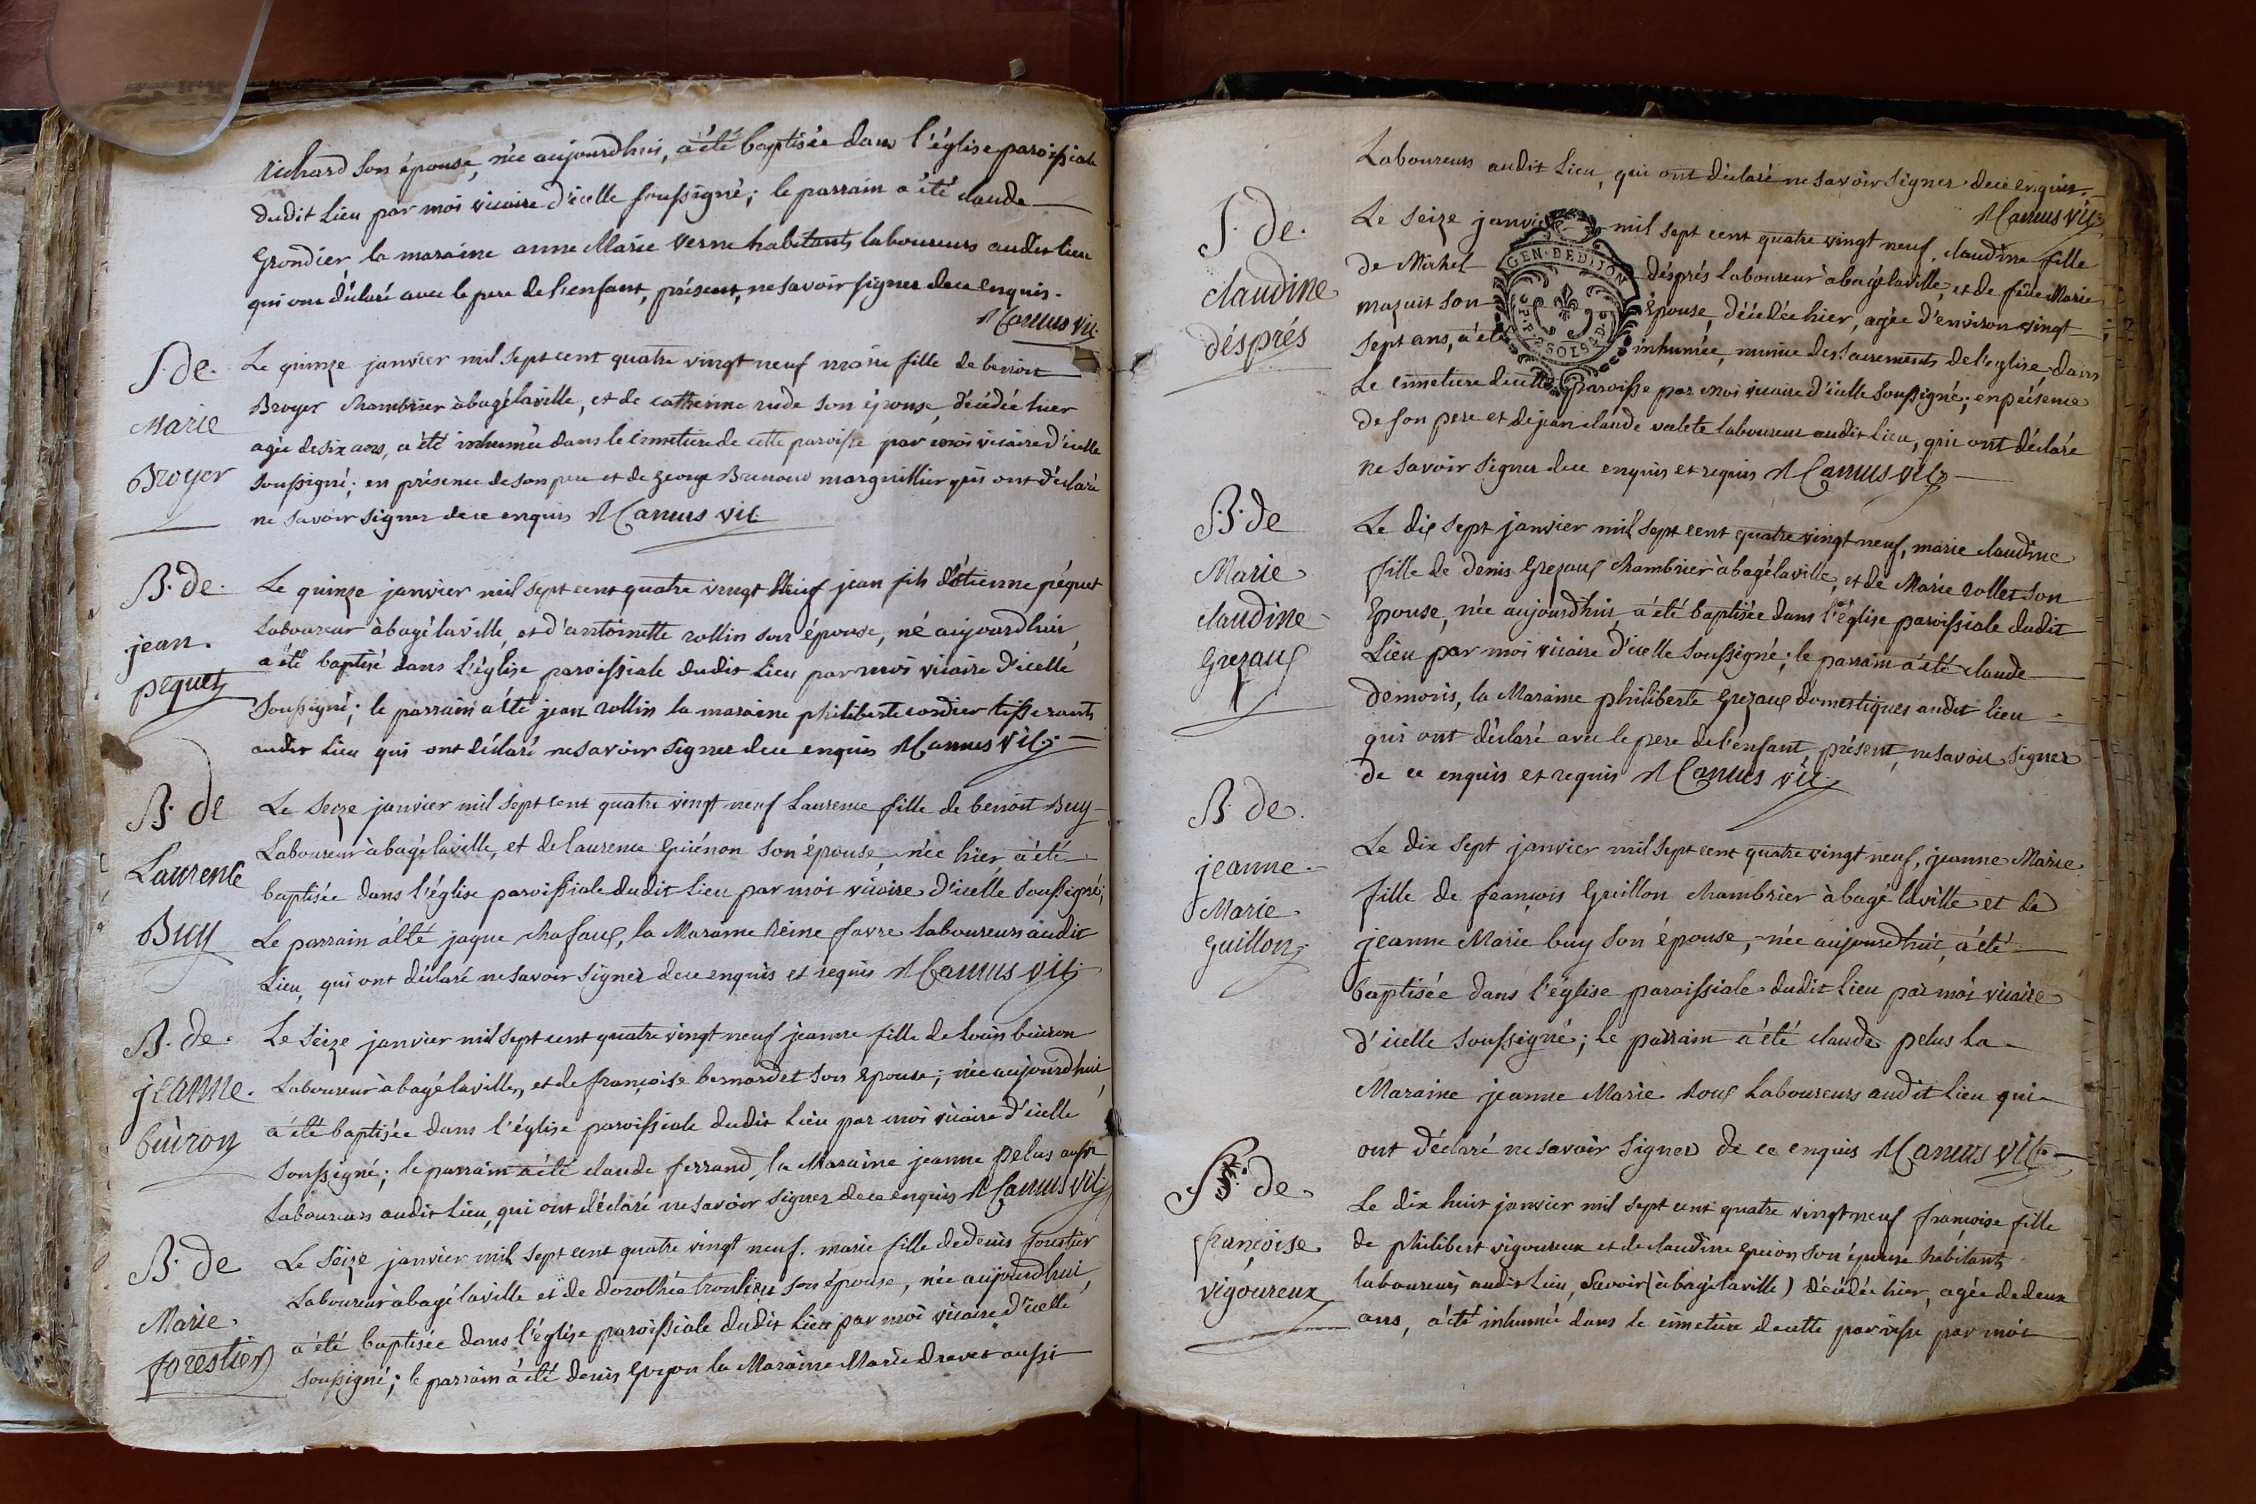 richard son épouse, née aujourdhui, a été baptisée dans l'église paroissiale
dudit Lieu par moi vicaire d'icelle soussigné; le parrain a été claude
Grondier la maraine anne Marie Verne habitants laboureurs audit lieu
qui ont déclaré avec le pere de l'enfant, présent, ne savoir signer de ce enquis.
Camus vic
S. de.
Marie
Broyer
Le quinze janvier mil sept cent quatre vingt neuf marie fille de benoit
Broyer chambrier à bagé laville, et de catherine rude son épouse, décédée hier
agée de six ans, a été inhumée dans le cimetiere de cette paroisse par moi vicaire d'icelle
soussigné; en présence de son pere et de george Brunoud marguillier qui ont déclaré
ne savoir signer de ce enquis Camus vic
B. de.
jean.
pequet
Le quinze janvier mil sept cent quatre vingt neuf jean fils d'étienne péquet
Laboureur à bagé laville, et d'antoinette rollin son épouse, né aujourdhui,
a été baptisé dans l'église paroissiale dudit Lieu par moi vicaire d'icelle
soussigné; le parrain a été jean rollin la maraine philiberte cordier tisserants
audit Lieu qui ont déclaré ne savoir signer de ce enquis Camus vic
B. de
Laurence
Buy
Le seize janvier mil sept cent quatre vingt neuf Laurence fille de benoit Buy
Laboureur à bagé laville, et de laurence guénon son épouse née hier, a été
baptisée dans l'église paroissiale dudit Lieu par moi vicaire d'icelle soussigné;
Le parrain a été jaque chafaux, la Maraine Reine favre laboureurs audit
Lieu, qui ont déclaré ne savoir signer de ce enquis et requis Camus vic
B. de.
jeanne.
buiron
Le seize janvier mil sept cent quatre vingt neuf jeanne fille de Louis buiron
Laboureur à bagé laville, et de françoise bernardet son epouse; née aujourdhui,
a été baptisée dans l'église paroissiale dudit Lieu par moi vicaire d'icelle
soussigné; le parrain a été claude ferrand, la Maraine jeanne pelus aussi
Laboureurs audit Lieu, qui ont déclaré ne savoir signer de ce enquis Camus vic
B. de
Marie.
forestier
Le seize janvier mil sept cent quatre vingt neuf. marie fille de denis forestier
Laboureur à bagé laville et de dorothée son épouse, née aujourdhui,
a été baptisée dans l'église paroissiale dudit Lieu par moi vicaire d'icelle
soussigné; le parrain a été denis la Maraine Marie dravet aussi
Laboureurs audit Lieu, qui ont déclaré ne savoir signer de ce enquis.
Camus vic
S. de.
claudine
désprés
Le seize janvier mil sept cent quatre vingt neuf, claudine fille
de Michel désprés laboureur à bagé laville, et de feue Marie
mazuit son épouse, décédée hier, agée d'environ vingt
sept ans, a été inhumée, munie des sacrements de l'eglise dans
Le cimetiere de cette paroisse par moi vicaire d'icelle soussigné; en présence
de son pere et de jean claude valete laboureur audit Lieu, qui ont déclaré
ne savoir signer de ce enquis et requis Camus vic
GEN. DE DIJON
B. de
Marie
claudine
Grezaux
Le dix sept janvier mil sept cent quatre vingt neuf, marie claudine
fille de denis Grezaux chambrier à bagé laville, et de Marie rollet son
Epouse, née aujourdhui, a été baptisée dans l'église paroissiale dudit
Lieu par moi vicaire d'icelle soussigné; le parrain a été claude
demoris, la Maraine philiberte Grezaux domestiques audit lieu
qui ont déclaré avec le pere de l'enfant présent, ne savoir signer
de ce enquis et requis Camus vic
B. de.
jeanne.
Marie.
guillon
Le dix sept janvier mil sept cent quatre vingt neuf, jeanne Marie
fille de françois Guillon chambrier à bagé laville et de
jeanne Marie buy son épouse, née aujourdhui, a été
baptisée dans l'église paroissiale dudit Lieu par moi vicaire
d'icelle soussigné; le parrain a été claude pelus la
Maraine jeanne Marie roux Laboureurs audit Lieu qui
ont déclaré ne savoir signer de ce enquis Camus vic
S. de.
françoise
vigoureux
Le dix huit janvier mil sept cent quatre vingt neuf françoise fille
de philibert vigoureux et de claudine son épouse habitants
laboureurs audit Lieu, savoir (à bagé laville) décédée hier, agée de deux
ans, a été inhumée dans le cimetiere de cette paroisse par moi